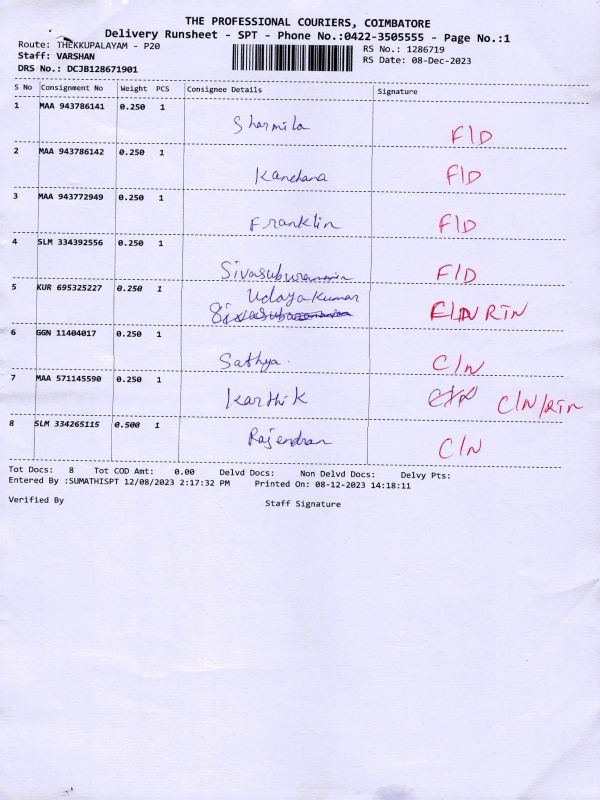 THE PROFESSIONAL COURIERS, COIMBATORE
Delivery Runsheet - SPT - Phone No.:0422-3505555 - Page No.:1
Route: THEKKUPALAYAM - P20
RS No.: 1286719
Staff: VARSHAN
RS Date: 08-Dec-2023
DRS No.: DCJB128671901
S No Consignment No Weight PCS Consignee Details Signature
1 MAA 943786141 0.250 1
Sharmila F/D
2 MAA 943786142 0.250 1
Kanchana F/D
3 MAA 943772949 0.250 1
Franklin F/D
4 SLM 334392556 0.250 1
Sivasubramanin F/D
5 KUR 695325227 0.250 1
Udaya Kumar
RTN
6 GGN 11404017 0.250 1
Sathya. C/N
7 MAA 571145590 0.250 1
Karthik C/N C/N/RTN
8 SLM 334265115 0.500 1
Rajendran C/N
Tot Docs: 8 Tot COD Amt: 0.00 Delvd Docs: Non Delvd Docs: Delvy Pts:
Entered By :SUMATHISPT 12/08/2023 2:17:32 PM Printed On: 08-12-2023 14:18:11
Verified By Staff Signature